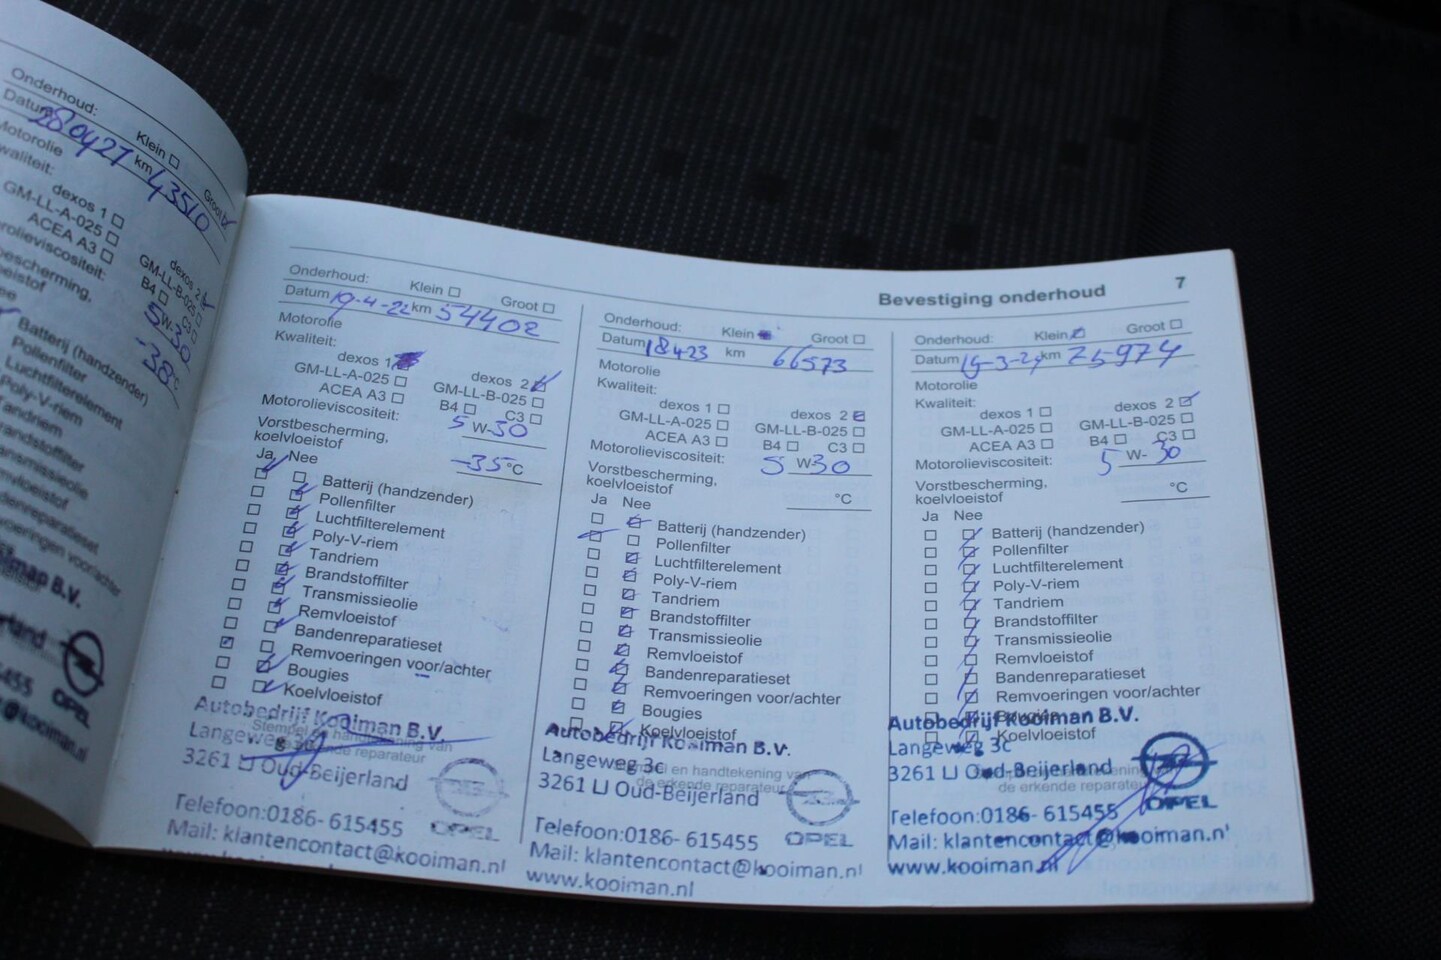 Onderhoud: Klein Groot
Datum 280421 km 43510
Motorolie
Kwaliteit:
dexos 1 dexos 2
GM-LL-A-025 GM-LL-B-025
ACEA A3 B4 C3
5W-30
-38°C
Batterij (handzender)
Pollenfilter
Luchtfilterelement
Poly-V-riem
OPEL
Bevestiging onderhoud 7
Onderhoud: Klein Groot
Datum 19-4-22 km 54402
Motorolie
Kwaliteit:
dexos 1 dexos 2
GM-LL-A-025 GM-LL-B-025
ACEA A3 B4 C3
Motorolieviscositeit: 5 W-30
Vorstbescherming,
koelvloeistof -35°C
Ja Nee
Batterij (handzender)
Pollenfilter
Luchtfilterelement
Poly-V-riem
Tandriem
Brandstoffilter
Transmissieolie
Remvloeistof
Bandenreparatieset
Remvoeringen voor/achter
Bougies
Koelvloeistof
Stempel en handtekening van
de erkende reparateur
Autobedrijf Kooiman B.V.
Langeweg 3c
3261 LJ Oud-Beijerland
OPEL
Telefoon:0186- 615455
Mail: klantencontact@kooiman.nl
www.kooiman.nl
Onderhoud: Klein Groot
Datum 18423 km 66573
Motorolie
Kwaliteit:
dexos 1 dexos 2
GM-LL-A-025 GM-LL-B-025
ACEA A3 B4 C3
Motorolieviscositeit: 5 W 30
Vorstbescherming,
koelvloeistof °C
Ja Nee
Batterij (handzender)
Pollenfilter
Luchtfilterelement
Poly-V-riem
Tandriem
Brandstoffilter
Transmissieolie
Remvloeistof
Bandenreparatieset
Remvoeringen voor/achter
Bougies
Koelvloeistof
Stempel en handtekening van
de erkende reparateur
Autobedrijf Kooiman B.V.
Langeweg 3c
3261 LJ Oud-Beijerland
OPEL
Telefoon:0186- 615455
Mail: klantencontact@kooiman.nl
www.kooiman.nl
Onderhoud: Klein Groot
Datum 19-3-24 km 75974
Motorolie
Kwaliteit:
dexos 1 dexos 2
GM-LL-A-025 GM-LL-B-025
ACEA A3 B4 C3
Motorolieviscositeit: 5 W- 30
Vorstbescherming,
koelvloeistof °C
Ja Nee
Batterij (handzender)
Pollenfilter
Luchtfilterelement
Poly-V-riem
Tandriem
Brandstoffilter
Transmissieolie
Remvloeistof
Bandenreparatieset
Remvoeringen voor/achter
Bougies
Koelvloeistof
de erkende reparateur
Autobedrijf Kooiman B.V.
Langeweg 3c
3261 LJ Oud-Beijerland
OPEL
Telefoon:0186- 615455
Mail: klantencontact@kooiman.nl
www.kooiman.nl